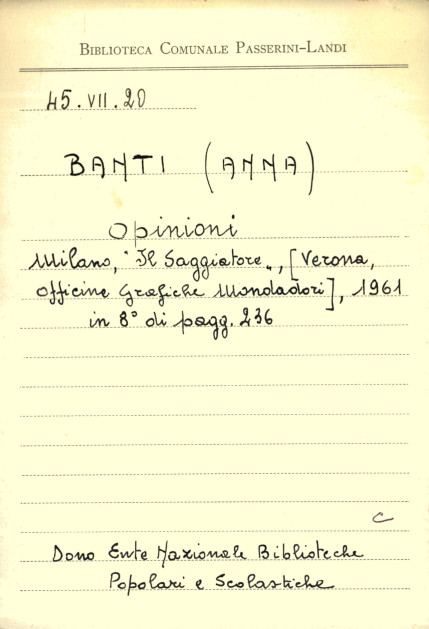 BIBLIOTECA COMUNALE PASSERINI-LANDI
45.VII.20
BANTI (ANNA)
Opinioni
Milano, "Il Saggiatore„, [Verona,
Officine Grafiche Mondadori], 1961
in 8° di pagg. 236
C
Dono Ente Nazionale Biblioteche
Popolari e Scolastiche